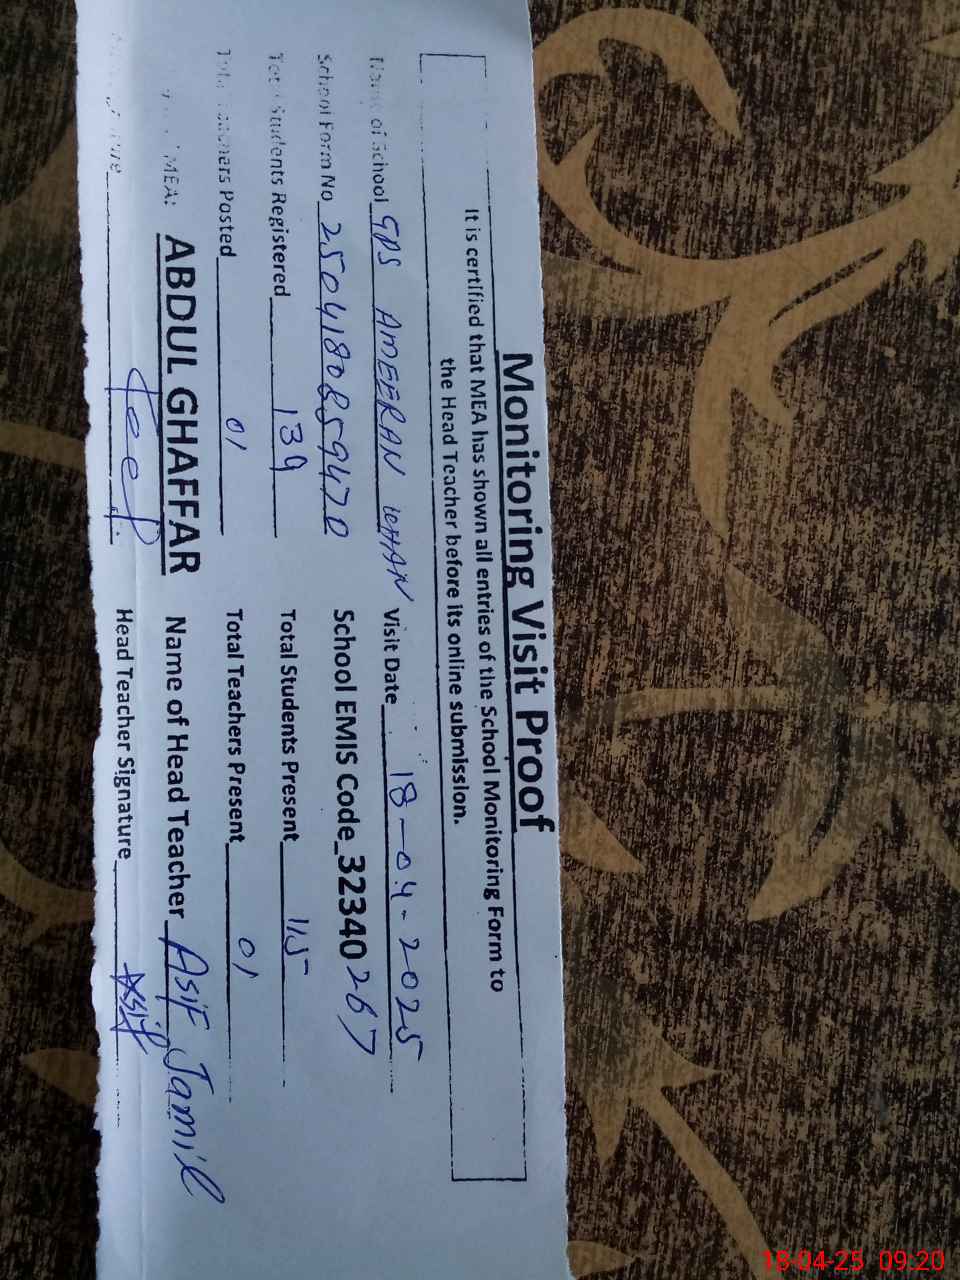 Monitoring Visit Proof
It is certified that MEA has shown all entries of the School Monitoring Form to
the Head Teacher before its online submission.
Name of School GPS AMEERAN KHAN Visit Date 18-04-2025
School Form No 250418085947 School EMIS Code 32340267
Total Students Registered 139 Total Students Present 115
Total Teachers Posted 01 Total Teachers Present 01
MEA: ABDUL GHAFFAR Name of Head Teacher Asif Jamil
Head Teacher Signature Asif
18-04-25 09:20